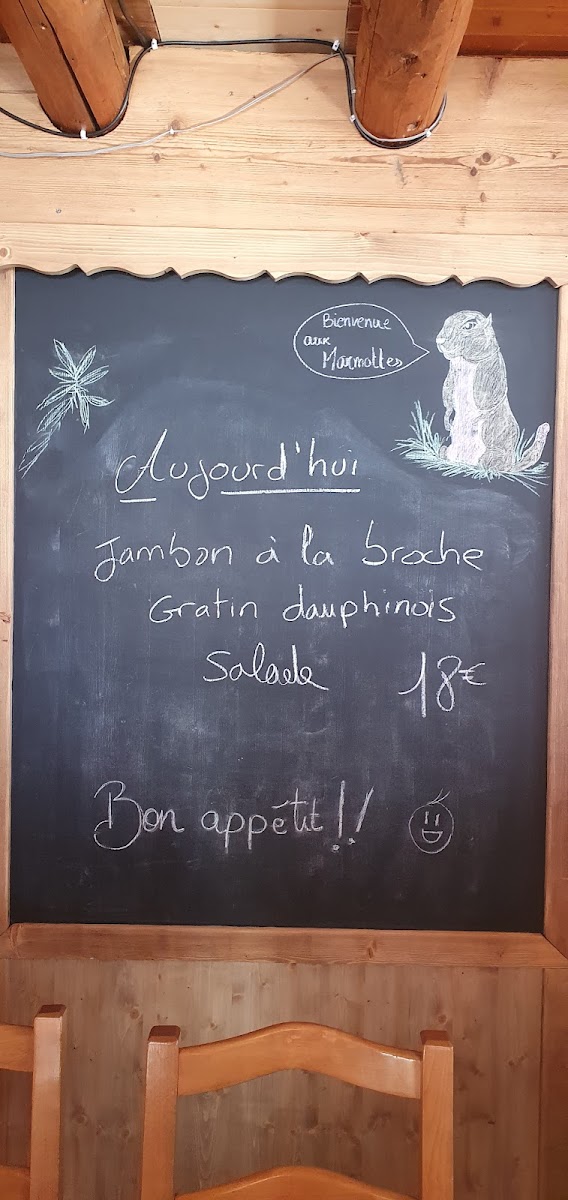 Bienvenue
aux
Marmottes
Aujourd'hui
Jambon à la broche
Gratin dauphinois
Salade 18€
Bon appétit !!